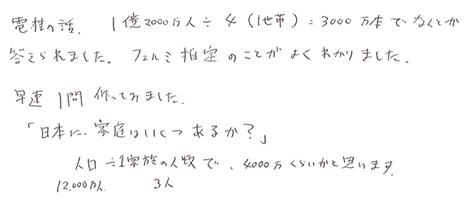 電柱の話. 1億2000万人÷4(1世帯)=3000万本でなくとか
答えられました. フェルミ推定のことがよくわかりました.
早速1問作ってみました.
「日本に、家庭はいくつあるか?」
人口÷1家族の人数で、4000万くらいかと思います.
12,000万人 3人